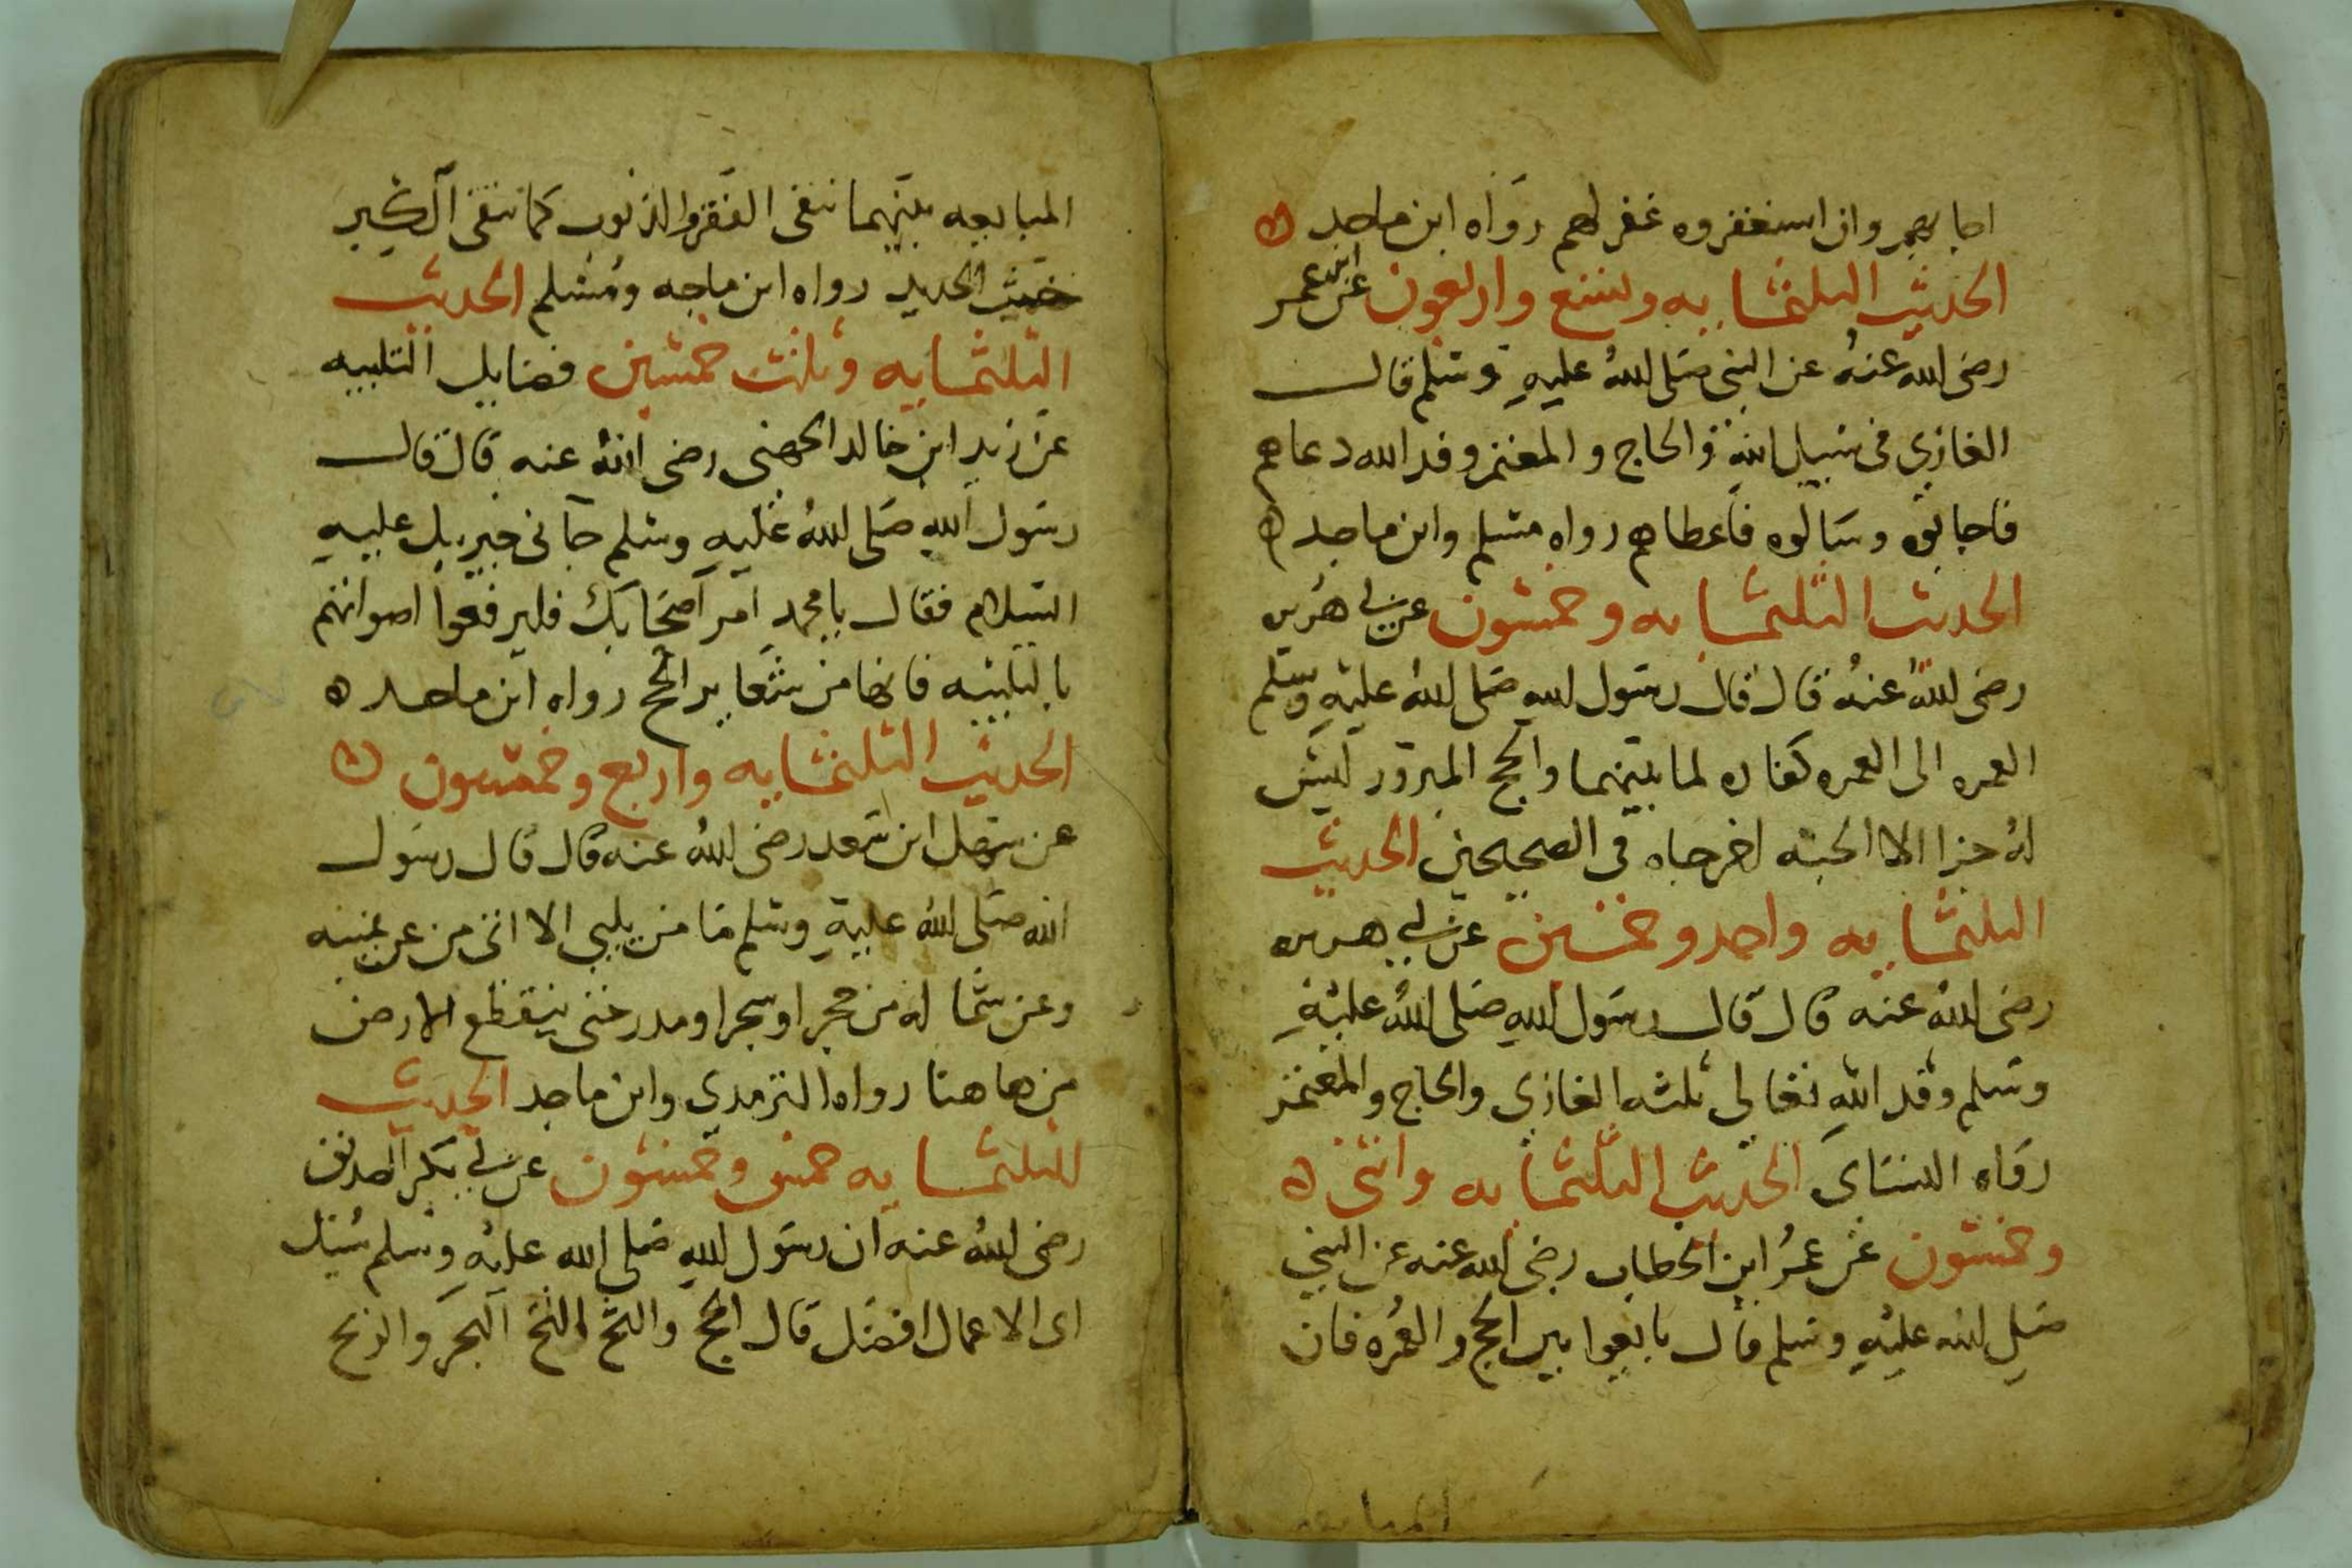 اجابهم وان استغفروه غفر لهم رواه ابن ماجه
الحديث الثلثمايه وتسع واربعون عن ابن عمر
رضى الله عنهُ عن النبى صَلى اللهُ عليهِ وسَلم قال
الغازى فى سَبيل اللهِ والحاج والمعتمر وفد الله دعاهم
فاجابوه وسَالوه فاعطاهم رواه مسْلم وابن ماجه
الحديث الثلثمايه وخمسون عن ابى هُريره
رضى اللهُ عنهُ قال قال رسَول الله صَلى اللهُ عليهِ وسلم
العمره الى العمره كفاره لما بينهما والحج المبرور ليسَ
لهُ جزا الا الجنه اخرجاه فى الصحيحين الحديث
الثلثمايه واحد وخمسين عن ابى هريره
رضى اللهُ عنه قال قال رسَول اللهِ صَلى اللهُ عليْهِ
وسَلم وفد اللهِ تعالى ثلثه الغازى والحاج والمعتمر
رواه النسَاى الحديث الثلثمايه واثنى
وخمسون عَن عمرُ ابن الخطاب رضى الله عنه عن النبى
صَلى الله عليْهِ وسَلم قال تابعوا بين الحج والعمُره فان
المتابعه
المتابعه بينهما تنفى الفقر والذنوب كما ينفى الكير
خبث الحديد رواه ابن ماجه ومُسْلم الحديث
الثلثمايه وثلث خمسين فضايل التلبيه
عَن زيد ابن خالد الجهنى رضى اللهُ عنه قال قال
رسَول اللهِ صَلى اللهُ عَليهِ وسَلم جَآنى جبريل عليهِ
السَلام فقال يا محمد آمر اصَحَابك فليرفعوا اصواتهم
بالتلبيه فانها من شعاير الحج رواه ابن ماجه
الحديث الثلثمايه واربع وخمسون
عن سَهل ابن سَعد رضى اللهُ عنه قال قال رسَول
الله صَلى اللهُ عليهِ وسَلم مَا من يلبى الا اتى من عن يمينه
وعن شما له من حجر او شجر او مدر حتى ينقطع الارض
من هاهنا رواه الترمدى وابن ماجه الحديث
الثلثمايه خمس وخمسون عن ابى بَكر الصديق
رضى اللهُ عنه ان رسَول اللهِ صَلى الله عليهِ وسَلم سُيل
اى الاعمال افضَل قال الحج والثج الثج النحر والذبح